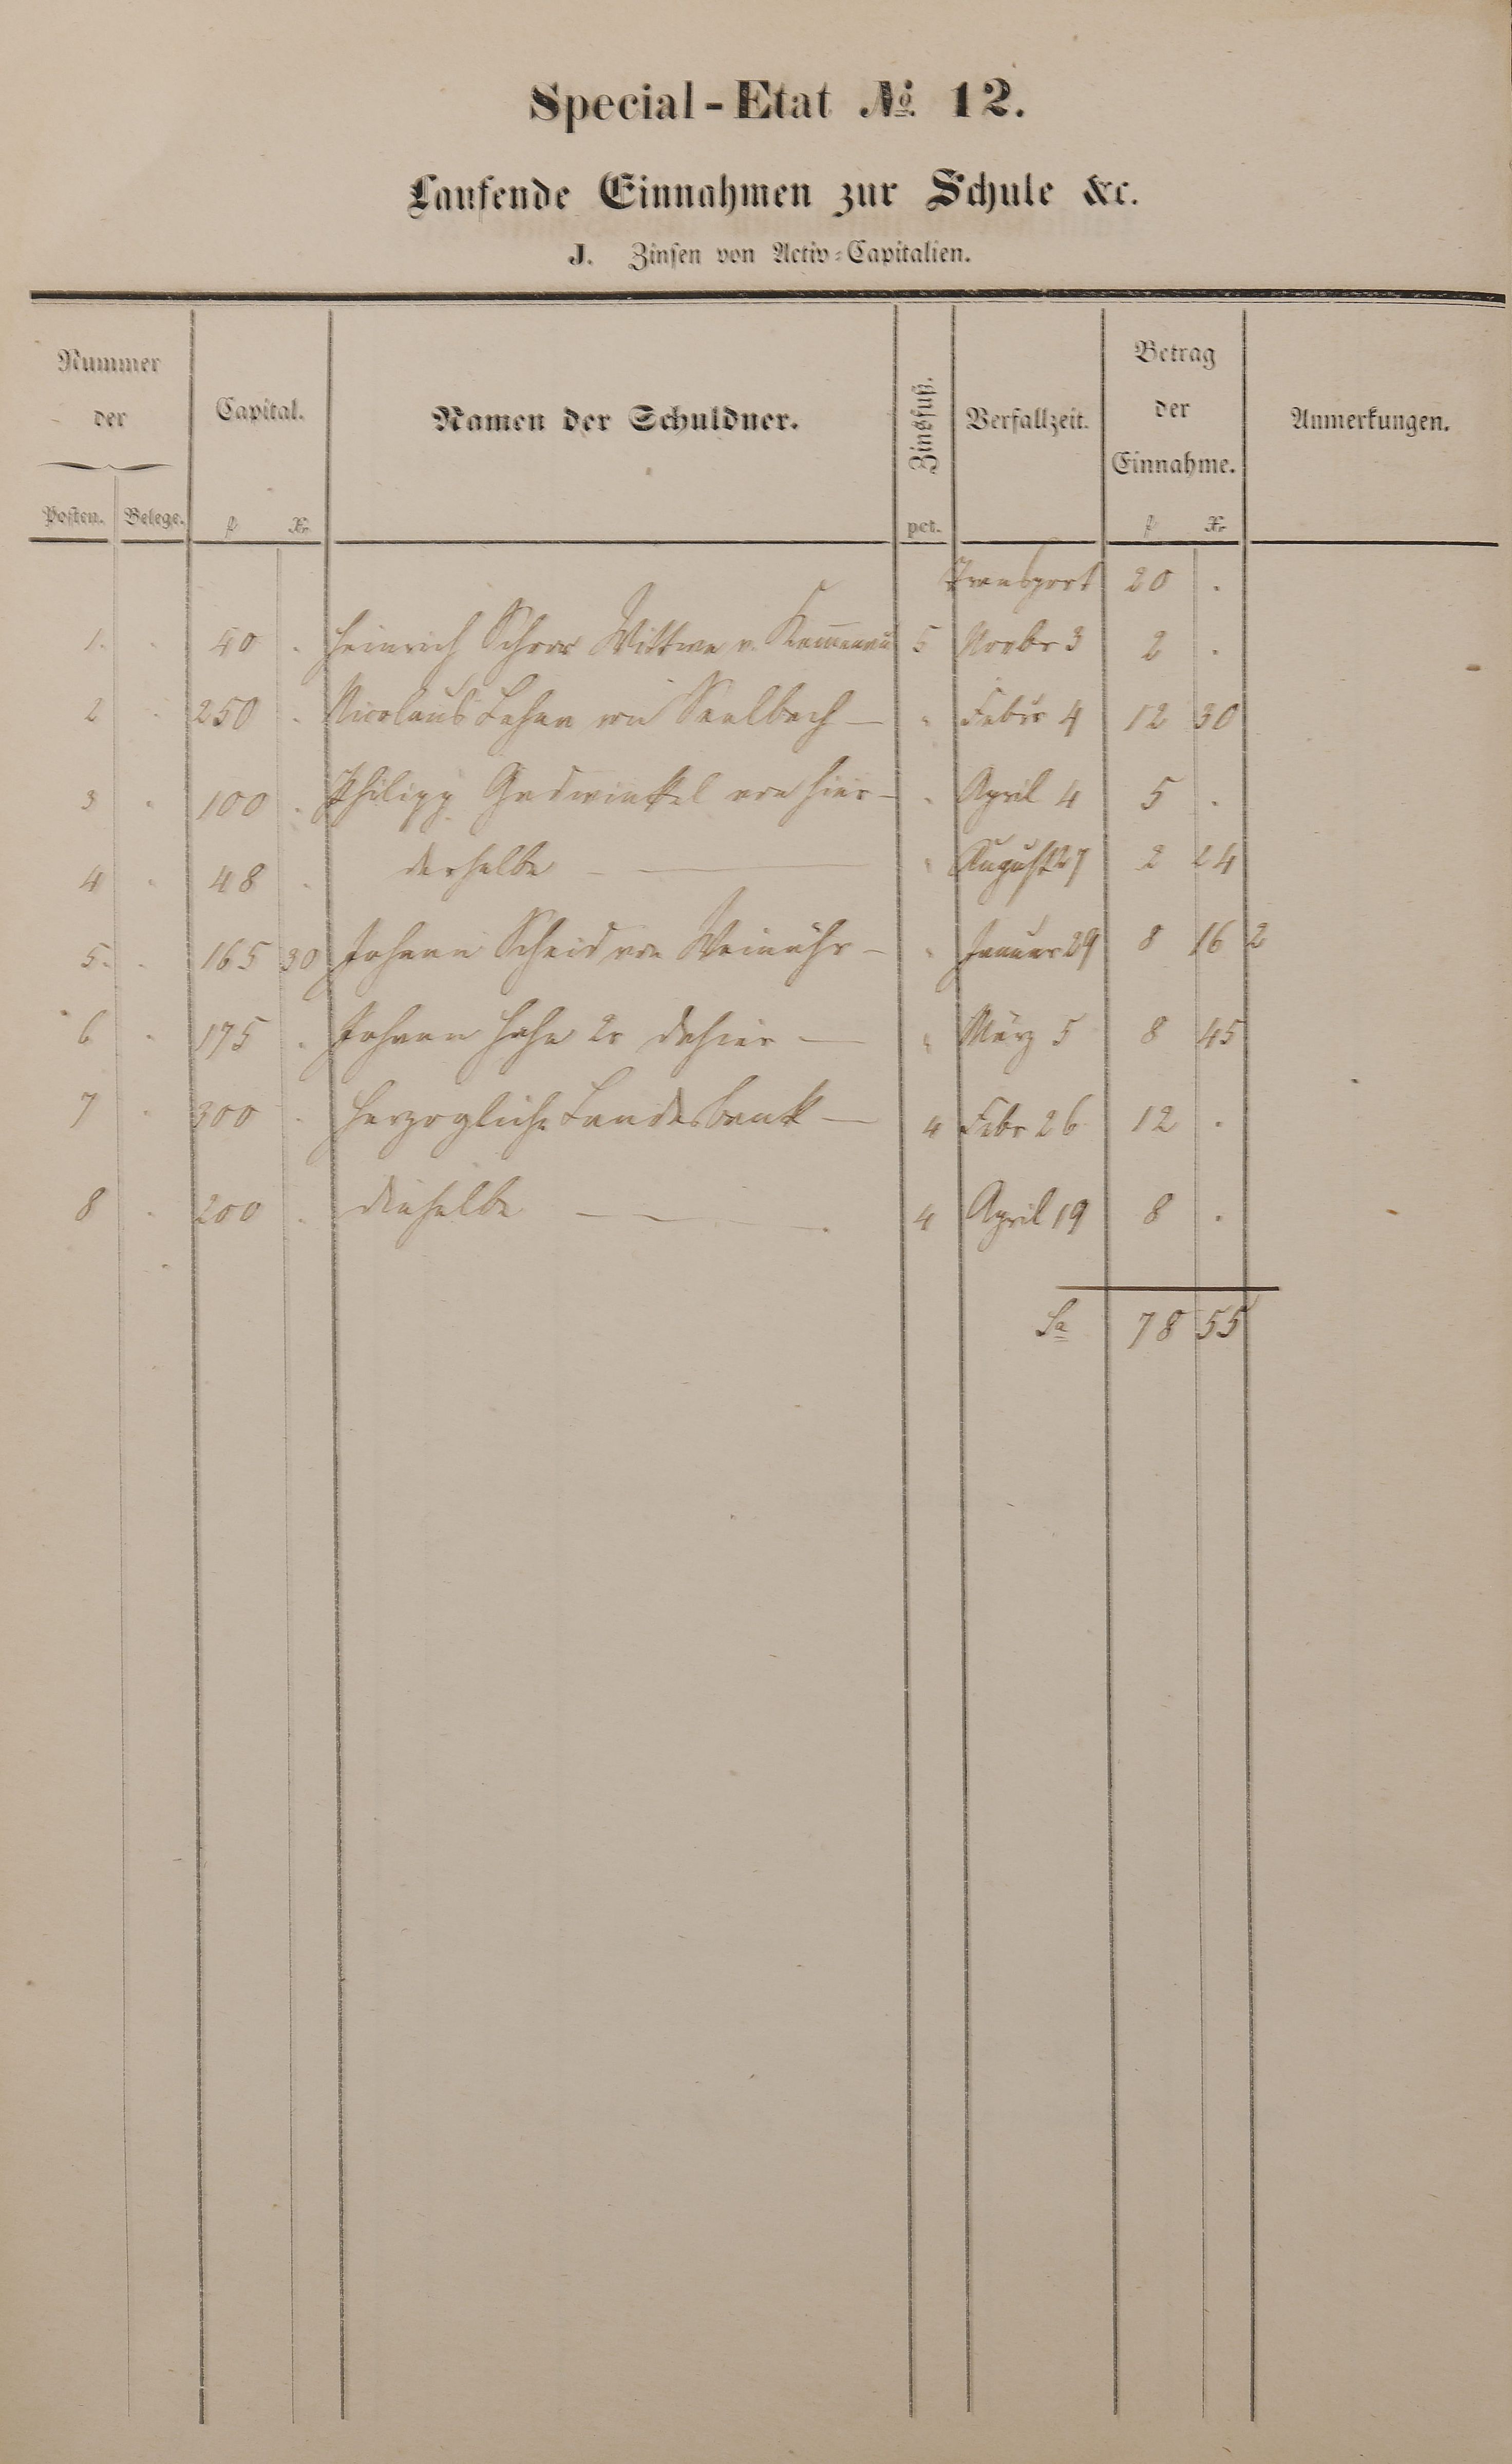 Special-Etat No. 12.
Laufende Einnahmen zur Schule &c.
J. Zinsen von Activ-Capitalien.
Nummer der
Posten. Belege.
Capital.
f. Xr.
Namen der Schuldner.
Zinsfuß.
pct.
Verfallzeit.
Betrag der Einnahme.
f. Xr.
Anmerkungen.
Transport 20 .
1. . 40 . Heinrich Wittwe v. Kemmenau 5 Novbr 3 2 .
2 . 250 . Nicolaus von Seelbach — " Febr 4 12 30
3 . 100 . Philipp Gadwinkel von hier — " April 4 5 .
4 . 48 . derselbe — " August 27 2 24
5. . 165 30 Johann Scheid von Weinähr — " Januar 29 8 16 2
6 . 175 . Johann Hahn 2r dahier — " März 5 8 45
7 . 300 . Herzogliche Landesbank — 4 Febr 26 12 .
8 . 200 . dieselbe — 4 April 19 8 .
Sa 78 55